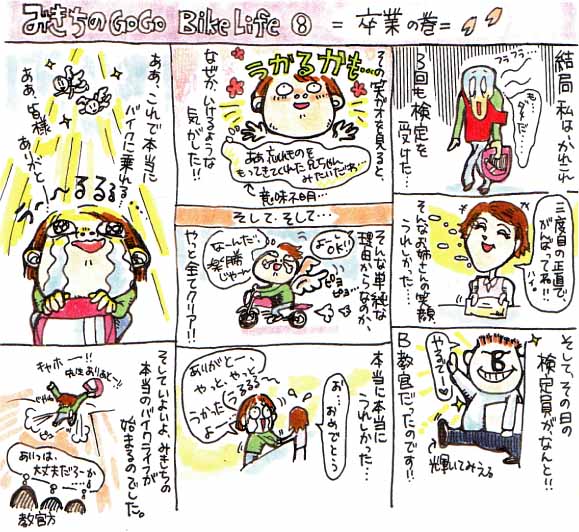 みきちのGOGO Bike Life ⑧ =卒業の巻=
結局 私は、かれこれ
3回も検定を
受けた…
フラフラ…
も…
ダメだ…
三度目の正直で
がんばってね!!
ハイ。
そんなお姉さんの笑顔
うれしかった…
そして、その日の
検定員がなんと!!
B教官だったのです!!
やるでー
B
輝いてみえる
その笑顔を見ると、
なぜか、いけるような
気がした!!
うかるかも…
ああ 忘れものを
もってきてくれた兄ちゃん
みたいだわ…
意味不明…
そして・そして…
そんな単純な
理由からなのか、
やっと全てクリア!!
よーし
OK!!
なーんだ!
楽勝
じゃん
ピョ
ピョ…
本当に本当に
うれしかった…
お…おめでとう
ありがとー、
やっと、やっと、
うかった(うるるる〜
よー
ああ、これで本当に
バイクに乗れる?
ああ、皆様
ありがとう
う〜るるるる〜
そしていよいよ、みきちの
本当のバイクライフが
始まるのでした。
キャホー!!
先生ありがとー!!
ピュー
あいつは、
大丈夫だろーか
教官方